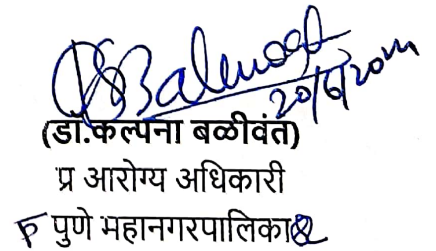 20/6/20
(डॉ.कल्पना बळीवंत)
प्र आरोग्य अधिकारी
पुणे महानगरपालिका